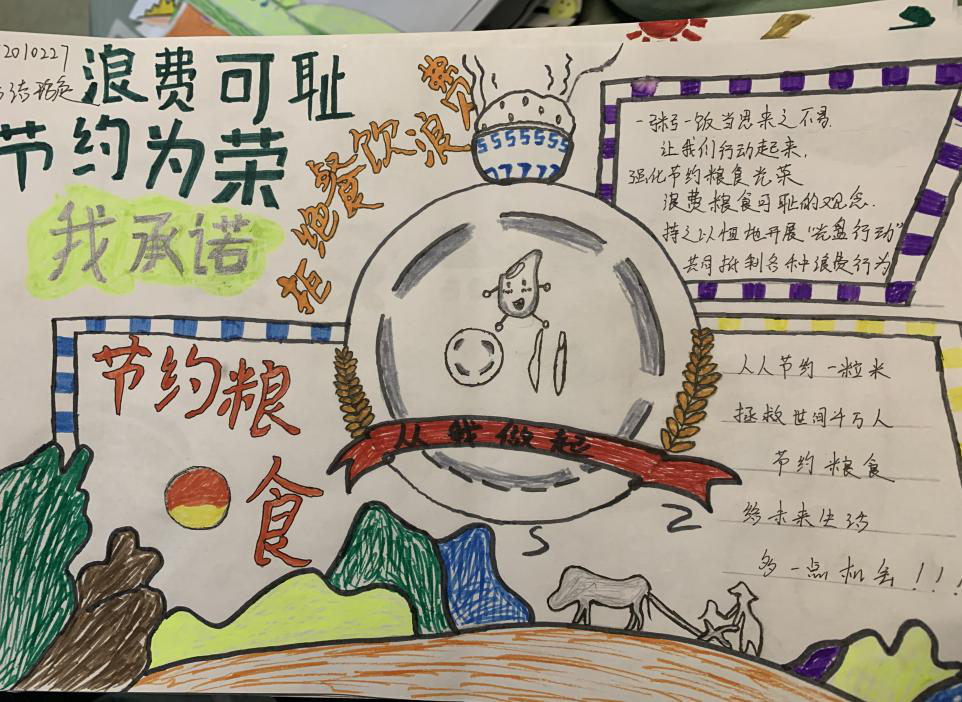 2010227
浪费可耻
节约为荣
我承诺
拒绝餐饮浪费
一粥一饭当思来之不易.
让我们行动起来,
强化节约粮食光荣
浪费粮食可耻的观念.
持之以恒地开展“光盘行动”
共同抵制各种浪费行为
节约粮
食
从我做起
人人节约一粒米
拯救世间千万人
节约粮食
给未来生活
多一点机会!!!